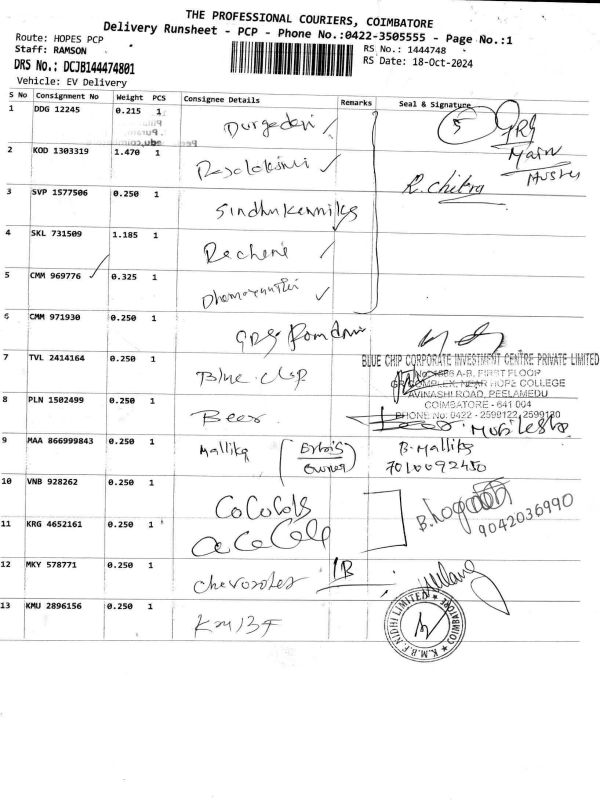 THE PROFESSIONAL COURIERS, COIMBATORE
Delivery Runsheet - PCP - Phone No.:0422-3505555 - Page No.:1
Route: HOPES PCP
Staff: RAMSON
DRS No.: DCJB144474801
Vehicle: EV Delivery
RS No.: 1444748
RS Date: 18-Oct-2024
S No Consignment No Weight PCS Consignee Details Remarks Seal & Signature
1 DDG 12245 0.215 1 Durgadevi 5 GRG
Main
2 KOD 1303319 1.470 1
R. chitra
3 SVP 1577506 0.250 1
4 SKL 731509 1.185 1
5 CMM 969776 0.325 1
6 CMM 971930 0.250 1
7 TVL 2414164 0.250 1 Blue chip
BLUE CHIP CORPORATE INVESTMENT CENTRE PRIVATE LIMITED
A-B, FIRST FLOOR
COMPLEX, NEAR HOPE COLLEGE
AVINASHI ROAD, PEELAMEDU
COIMBATORE - 641 004
PHONE No: 0422 - 2599122, 2599180
8 PLN 1502499 0.250 1
9 MAA 866999843 0.250 1 Mallika owner B. Mallika
7010092450
10 VNB 928262 0.250 1
9042036990
11 KRG 4652161 0.250 1
12 MKY 578771 0.250 1 1B
13 KMU 2896156 0.250 1 KMBF
K.M.B.F. NIDHI LIMITED
COIMBATORE